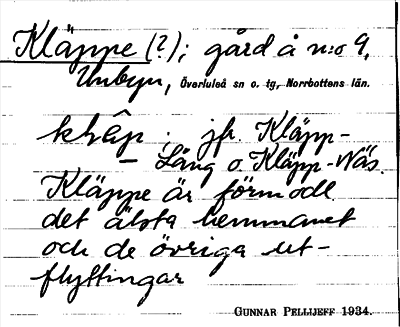 Kläppe (?); gård å n:o 9,
Unbyn, Överluleå sn o. tg, Norrbottens län.
jfr. Kläpp-
– Lång o. Kläpp-Näs.
Kläppe är förmodl.
det älsta hemmanet
och de övriga ut-
flyttingar
GUNNAR PELLIJEFF 1934.